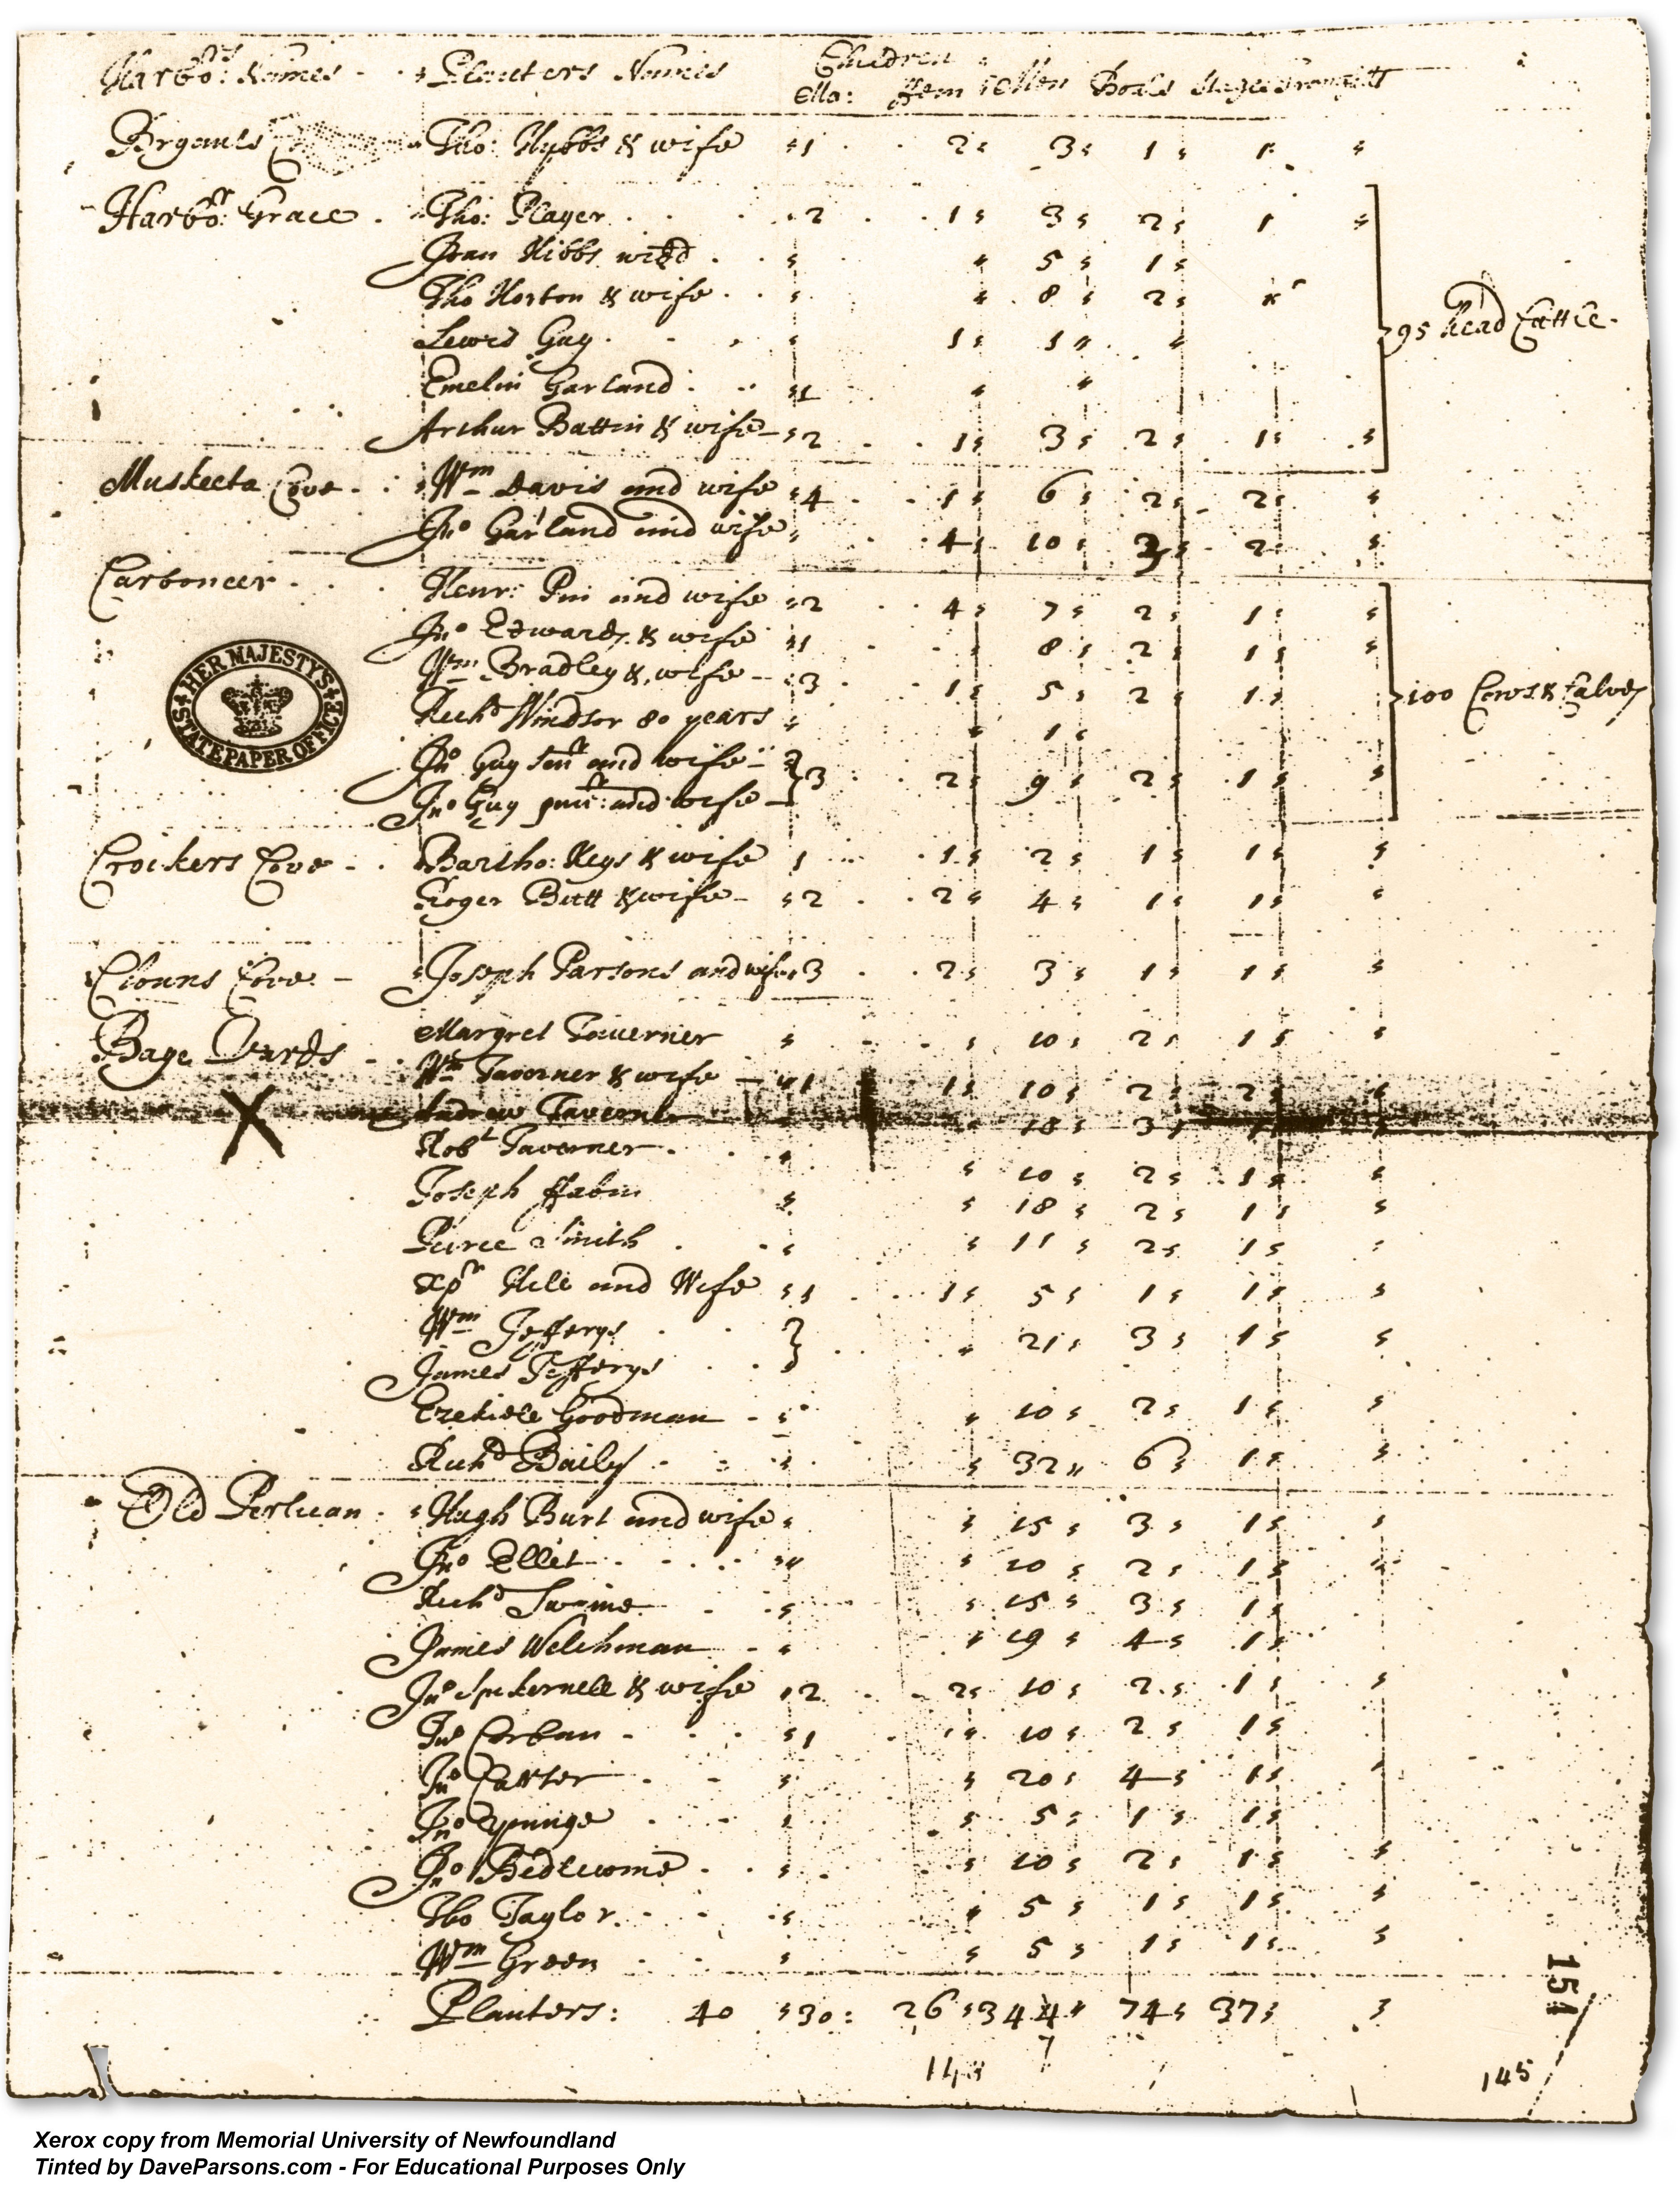 Children
Harbors: Names Planters Names Ma: ffem Men Boats Stages
Bryants Tho: Hybbs & wife 1 2 3 1 1
Harbor: Grace Tho: Player 2 1 3 2 1
Joan Hibbs widd 5 1
Tho Horton & wife 8 2
Lewis Guy 1 1
95 head Cattle
Emelin Garland 1
Arthur Battin & wife 2 1 3 2 1
Muskeeta Cove Wm Davis and wife 4 1 6 2 2
Jno Garland and wife 4 10 3 2
Carboneer Henr: Pin and wife 2 4 7 2 1
Jno Edwards & wife 1 8 2 1
Wm Bradley & wife 3 1 5 2 1
100 Cows & Calves
Richd Windsor 80 years 1
Jno Guy senr and wife
3 2 9 2 1
Jno Guy junir: and wife
HER MAJESTYS STATE PAPER OFFICE
Crockers Cove Bartho: Keys & wife 1 1 2 1 1
Roger Butt & wife 2 2 4 1 1
Clouns Cove Joseph Parsons and wife 3 2 3 1 1
Baye Verds Margret Taverner 10 2 1
Wm Taverner & wife 1 1 10 2 2
Andrew Taverner 18 3
Robt Taverner 10 2 1
Joseph ffabin 18 2 1
Peirce Smith 11 2 1
Xpr Hill and Wife 1 1 5 1 1
Wm Jefferys
21 3 1
James Jefferys
Ezekiele Goodman 10 2 1
Richd Baily 32 6 1
Old Perlican Hugh Burt and wife 15 3 1
Jno Ellet 10 2 1
Richd Swaine 15 3 1
James Welshman 19 4 1
Jno Spikernell & wife 2 2 10 2 1
Jno Corban 1 10 2 1
Jno Carter 20 4 1
Jno Younge 5 1 1
Jno Bedlcome 10 2 1
Tho Taylor 5 1 1
Wm Green 5 1 1
Planters: 40 30: 26 344 74 37
151
145
Xerox copy from Memorial University of Newfoundland
Tinted by DaveParsons.com - For Educational Purposes Only